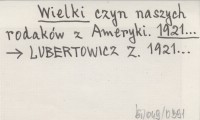 Wielki czyn naszych
rodaków z Ameryki. 1921...
→ LUBERTOWICZ Z. 1921...